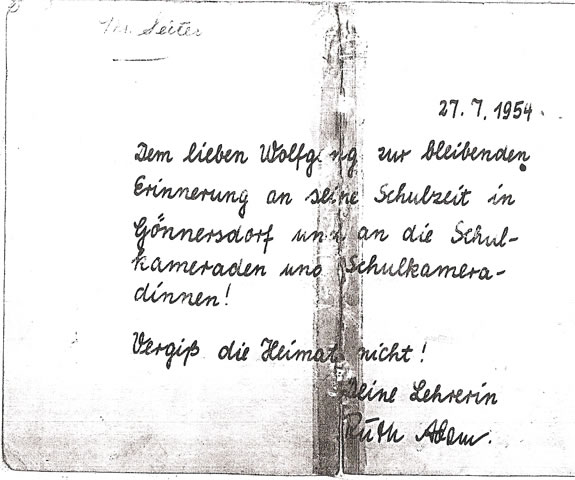 Seiter
27.7.1954.
Dem lieben Wolfgang zur bleibenden
Erinnerung an seine Schulzeit in
Gönnersdorf und an die Schul-
kameraden und Schulkamera-
dinnen!
Vergiß die Heimat nicht!
Deine Lehrerin
Ruth Adam.